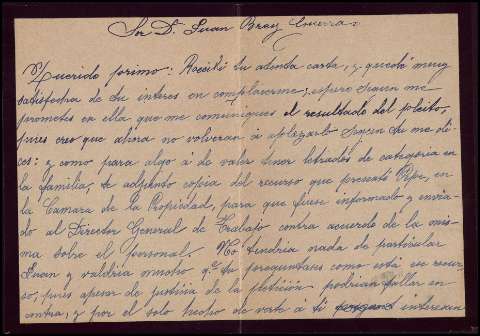 Sr D. Juan Brey Guerra.
Querido primo: Recibí tu atenta carta, y quedé muy
satisfecha de tu interes en complacerme; espero segun me
prometes en ella que me comuniques el resultado del pleito,
pues creo que ahora no volveran á aplazarlo segun tu me di-
ces: y como para algo á de valer tener letrados de categoria en
la familia, te adjunto copia del recurso que presentó Pepe, en
la Camara de la Propiedad, para que fuese informado y envia-
do al Director General de Trabajo contra acuerdo de la mis-
ma sobre el personal. No tendria nada de particular
Juan y valdria mucho q.e tu preguntases como está ese recur-
so, pues apesar de justicia de la petición podrian fallar en
contra, y por el solo hecho de verte á ti interesan